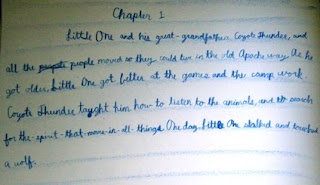 Chapter 1
Little One and his great-grandfather, Coyote Thunder, and
all the people moved so they could live in the old Apache way. As he
got older, Little One got better at the games and the camp work.
Coyote Thunder taught him how to listen to the animals, and to search
for the-spirit-that-moves-in-all-things. One day Little One stalked and touched
a wolf.